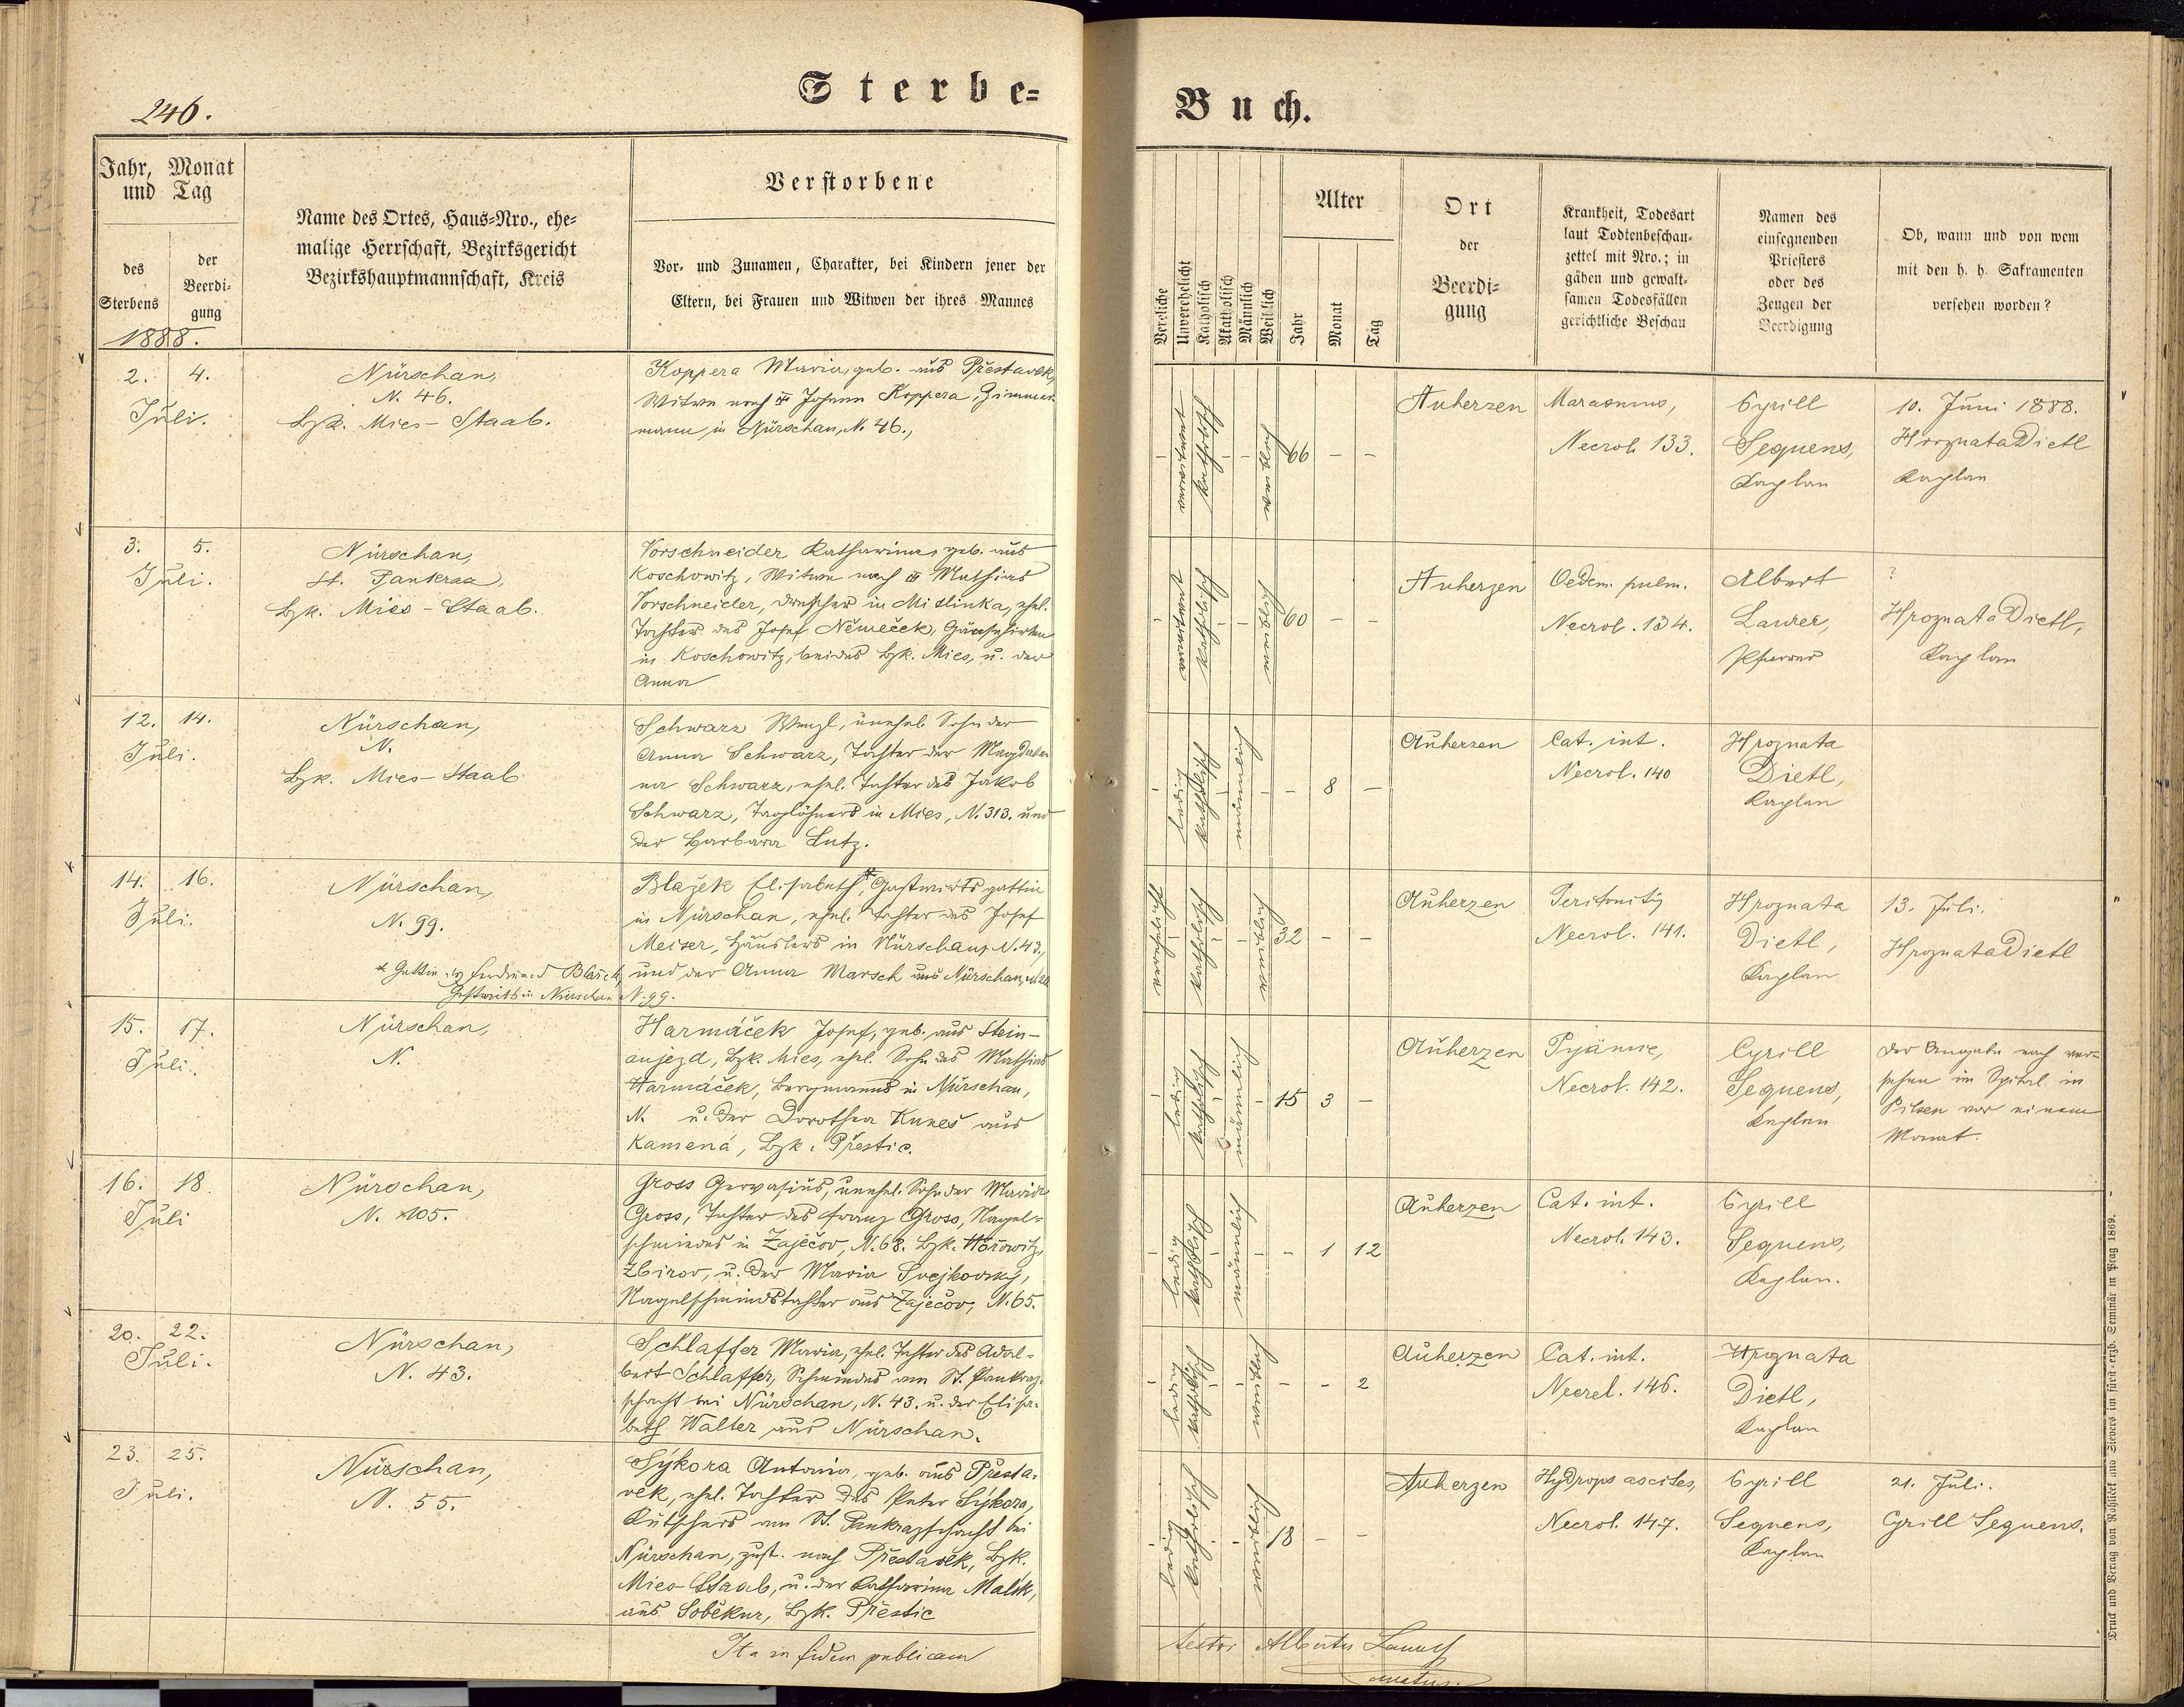 Sterbe=
Buch.
246.
Jahr, Monat
und Tag
des
Sterbens
der
Beerdi-
gung
1888.
Name des Ortes, Haus=Nro., ehe=
malige Herrschaft, Bezirksgericht
Bezirkshauptmannschaft, Kreis
Verstorbene
Vor- und Zunamen, Charakter, bei Kindern jener der
Eltern, bei Frauen und Witwen der ihres Mannes
Verehliche
Unverehelicht
Katholisch
Akatholisch
Männlich
Weiblich
Alter
Jahr
Monat
Tag
Ort
der
Beerdi=
gung
Krankheit, Todesart
laut Todtenbeschau=
zettel mit Nro.; in
gähen und gewalt=
samen Todesfällen
gerichtliche Beschau
Namen des
einsegnenden
Priesters
oder des
Zeugen der
Beerdigung
Ob, wann und von wem
mit den h. h. Sakramenten
versehen worden?
2. 4.
Juli.
Nürschan,
N. 46.
Bzk. Mies-Staab.
Koppera Maria, geb. aus Přestavlk,
Witwe nach Johann Koppera, Zimmer-
mann in Nürschan, N. 46.,
- verwitwet katholisch - - weiblich 66 - -
Auherzen
Marasmus,
Necrol. 133.
Cyrill
Sequens,
Kaplan
10. Juni 1888.
Hroznata Dietl
Kaplan
3. 5.
Juli.
Nürschan,
St. Pankraz,
Bzk. Mies-Staab.
Vorschneider Katharina, geb. aus
Koschowitz, Witwe nach Mathias
Vorschneider, Drescher in Mislinka, ehel.
Tochter des Josef Němeček, Gänsehirten
in Koschowitz, beides Bzk. Mies, u. der
Anna
- verwitwet katholisch - - weiblich 60 - -
Auherzen
Oedem. pulm.
Necrol. 134.
Albert
Laurer,
Pfarrer
?
Hroznata Dietl,
Kaplan
12. 14.
Juli.
Nürschan,
N.
Bzk. Mies-Staab
Schwarz Wenzl, unehel. Sohn der
Anna Schwarz, Tochter der Magdale-
na Schwarz, ehel. Tochter des Jakob
Schwarz, Taglöhners in Mies, N. 313. und
der Barbara Lutz.
- ledig katholisch - männlich - - 8 -
Auherzen
Cat. int.
Necrol. 140
Hroznata
Dietl,
Kaplan
14. 16.
Juli.
Nürschan,
N. 99.
Blažek Elisabeth,* Gastwirts gattin
in Nürschan, ehel. Tochter des Josef
Meiser, Häuslers in Nürschan, N. 43,
und der Anna Marsch aus Nürschan, N. 20
* Gattin des Ferdinand Blažek,
Gastwirts in Nürschan N. 99.
verehelicht - katholisch - - weiblich 32 - -
Auherzen
Peritonitis
Necrol. 141.
Hroznata
Dietl,
Kaplan
13. Juli.
Hroznata Dietl
15. 17.
Juli.
Nürschan,
N.
Harmáček Josef, geb. aus Stein-
aujezd, Bzk. Mies, ehel. Sohn des Mathias
Harmáček, Bergmanns in Nürschan,
N. u. der Dorothea Kuneš aus
Kamená, Bzk. Přestic.
- ledig katholisch - männlich - 15 3 -
Auherzen
Pyämie,
Necrol. 142.
Cyrill
Sequens,
Kaplan
Der Angabe nach ver-
sehen im Spital in
Pilsen vor einem
Monat.
16. 18.
Juli
Nürschan,
N. 105.
Gross Gervasius, unehel. Sohn der Maria
Gross, Tochter des Franz Gross, Nagel-
schmiedes in Zaječov, N. 68. Bzk. Hořowitz,
Zbirov, u. der Maria Svejkovský,
Nagelschmiedstochter aus Zaječov, N. 65.
- ledig katholisch - männlich - - 1 12
Auherzen
Cat. int.
Necrol. 143.
Cyrill
Sequens,
Kaplan.
20. 22.
Juli.
Nürschan,
N. 43.
Schlaffer Maria, ehel. Tochter des Adal-
bert Schlaffer, Schmiedes am St. Pankraz-
schacht bei Nürschan, N. 43. u. der Elisa-
beth Walter aus Nürschan.
- ledig katholisch - - weiblich - - 2
Auherzen
Cat. int.
Necrol. 146.
Hroznata
Dietl,
Kaplan
23. 25.
Juli.
Nürschan,
N. 55.
Sýkora Antonia, geb. aus Přesta-
vlk, ehel. Tochter des Peter Sýkora,
Kutschers am St. Pankrazschacht bei
Nürschan, zust. nach Přestavlk, Bzk.
Mies-Staab, u. der Katharina Malik,
aus Soběkur, Bzk. Přestic
- ledig katholisch - - weiblich 18 - -
Auherzen
Hydrops ascites,
Necrol. 147.
Cyrill
Sequens,
Kaplan
21. Juli.
Cyrill Sequens.
Ita in fidem publicam
testor Albertus Laurer
Druck und Verlag von Rohliček und Sievers im fürst-erzb. Seminär in Prag 1869.